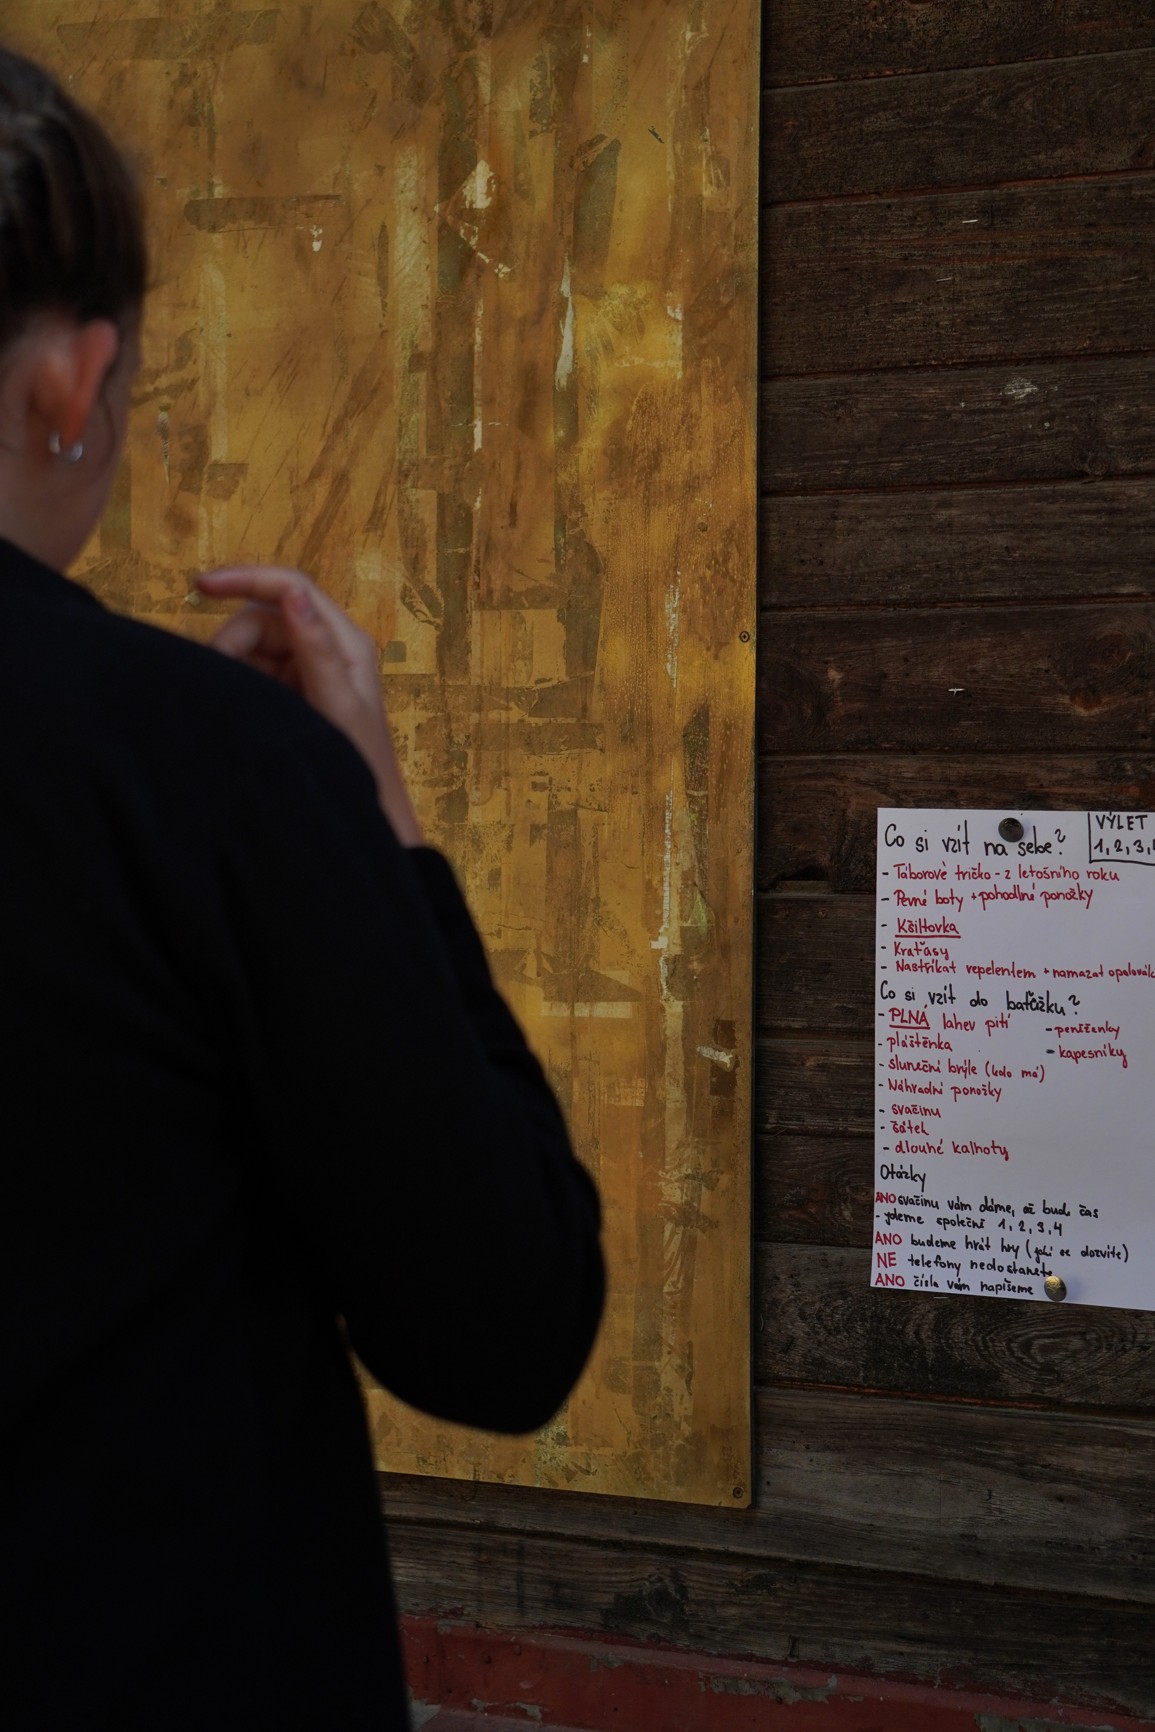 Co si vzít na sebe?
VÝLET
1, 2, 3,
- Táborové tričko - z letošního roku
- Pevné boty + pohodlné ponožky
- Kšiltovka
- Kraťasy
- Nastříkat repelentem + namazat
Co si vzít do baťůžku?
- PLNÁ lahev pití
- peněženky
- pláštěnka
- kapesníky
- Sluneční brýle (kdo má)
- Náhradní ponožky
- svačinu
- šátek
- dlouhé kalhoty
Otázky
ANO svačinu vám dáme, až bude čas
- jdeme společně 1, 2, 3, 4
ANO budeme hrát hry (jaké se dozvíte)
NE telefony nedostanete
ANO čísla vám napíšeme